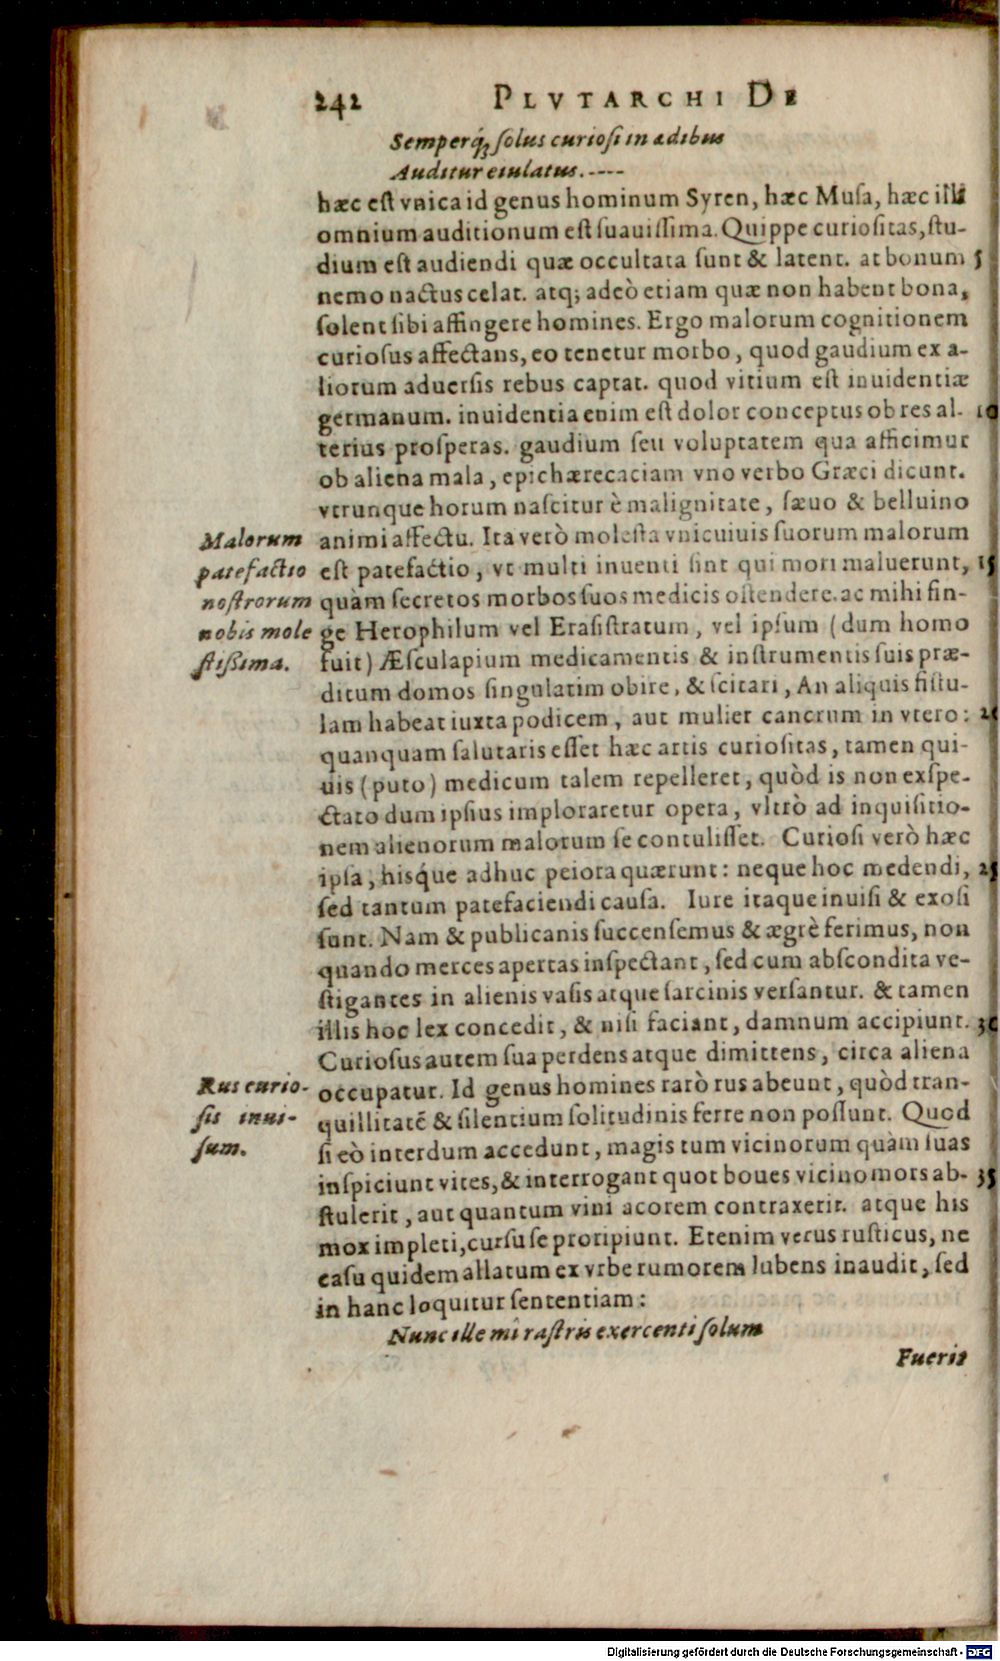 242 PLVTARCHI DE
Semperq́; ſolus curioſi in ædibus
Auditur eiulatus.----
hæc eſt vnica id genus hominum Syren, hæc Muſa, hæc illi
omnium auditionum eſt ſuauiſſima. Quippe curioſitas, ſtu-
dium eſt audiendi quæ occultata ſunt & latent. at bonum 5
nemo nactus celat. atq; adeò etiam quæ non habent bona,
ſolent ſibi affingere homines. Ergo malorum cognitionem
curioſus affectans, eo tenetur morbo, quod gaudium ex a-
liorum aduerſis rebus captat. quod vitium eſt inuidentiæ
germanum. inuidentia enim eſt dolor conceptus ob res al- 10
terius proſperas. gaudium ſeu voluptatem qua afficimur
ob aliena mala, epichærecaciam vno verbo Græci dicunt.
vtrunque horum naſcitur è malignitate, ſæuo & belluino
Malorum animi affectu. Ita verò moleſta vnicuiuis ſuorum malorum
patefactio eſt patefactio, vt multi inuenti ſint qui mori maluerunt, 15
noſtrorum quàm ſecretos morbos ſuos medicis oſtendere. ac mihi fin-
nobis mole ge Herophilum vel Eraſiſtratum, vel ipſum (dum homo
ſtißima. fuit) Æſculapium medicamentis & inſtrumentis ſuis præ-
ditum domos ſingulatim obire, & ſcitari, An aliquis fiſtu-
lam habeat iuxta podicem, aut mulier cancrum in vtero: 20
quanquam ſalutaris eſſet hæc artis curioſitas, tamen qui-
uis (puto) medicum talem repelleret, quòd is non exſpe-
ctato dum ipſius imploraretur opera, vltrò ad inquiſitio-
nem alienorum malorum ſe contuliſſet. Curioſi verò hæc
ipſa, hisq́ue adhuc peiora quærunt: neque hoc medendi, 25
ſed tantum patefaciendi cauſa. Iure itaque inuiſi & exoſi
ſunt. Nam & publicanis ſuccenſemus & ægrè ferimus, non
quando merces apertas inſpectant, ſed cum abſcondita ve-
ſtigantes in alienis vaſis atque ſarcinis verſantur. & tamen
illis hoc lex concedit, & niſi faciant, damnum accipiunt. 30
Curioſus autem ſua perdens atque dimittens, circa aliena
Rus curio- occupatur. Id genus homines rarò rus abeunt, quòd tran-
ſis inui- quillitatē & ſilentium ſolitudinis ferre non poſſunt. Quod
ſum. ſi eò interdum accedunt, magis tum vicinorum quàm ſuas
inſpiciunt vites, & interrogant quot boues vicino mors ab- 35
ſtulerit, aut quantum vini acorem contraxerit. atque his
mox impleti, curſu ſe proripiunt. Etenim verus ruſticus, ne
caſu quidem allatum ex vrbe rumorem lubens inaudit, ſed
in hanc loquitur ſententiam:
Nunc ille mî raſtris exercenti ſolum
Fuerit
Digitalisierung gefördert durch die Deutsche Forschungsgemeinschaft - DFG